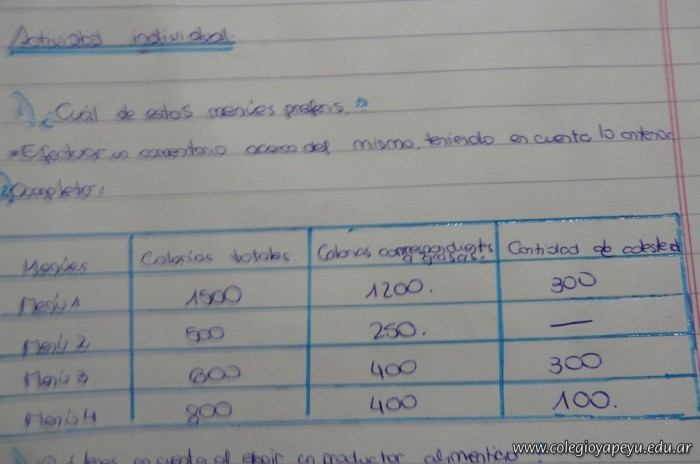 Actividad individual.
1) ¿Cuál de estos menúes preferís?
Efectuar un comentario acerca del mismo, teniendo en cuenta lo anterior
2) Completar:
Menúes Calorías totales Calorías correspondients a grasas. Cantidad de colesterol
Menú 1 1500 1200. 300
Menú 2 500 250. —
Menú 3. 600 400 300
Menú 4 800 400 100.
en cuenta al elegir un productor alimenticio
www.colegioyapeyu.edu.ar